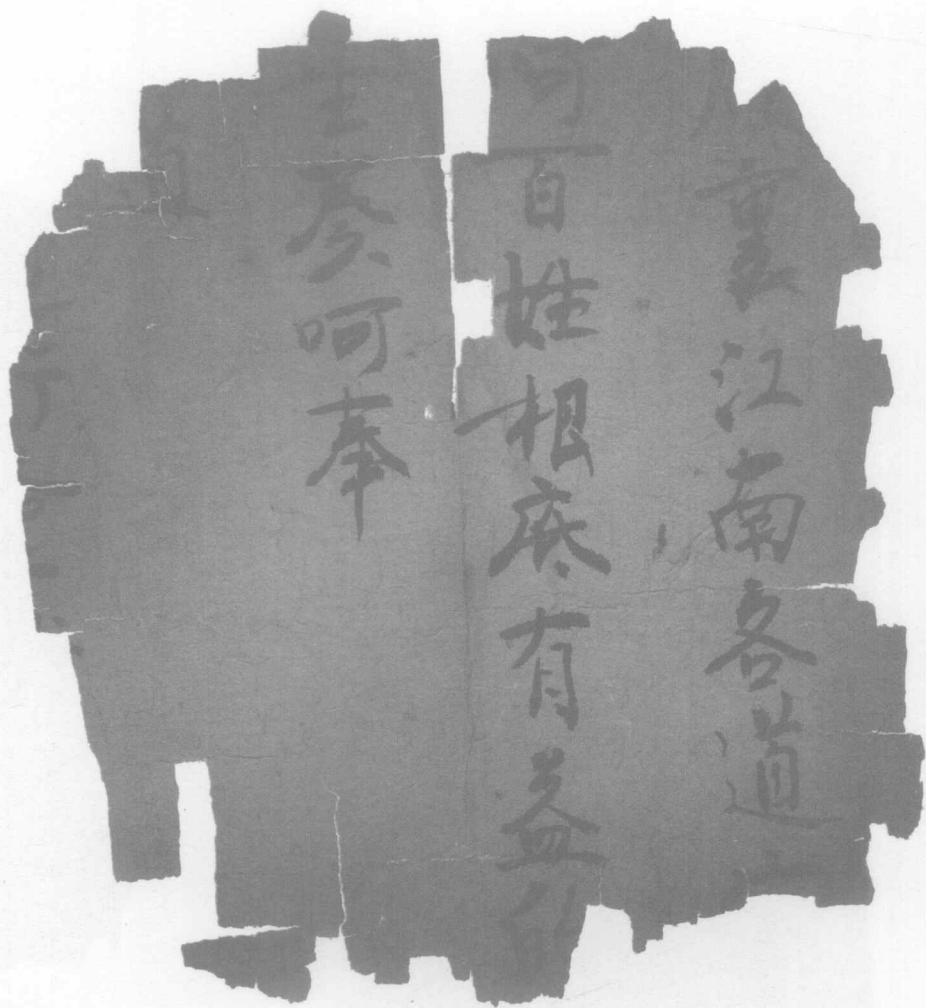 裏江南各道
百姓根底有益的
奏呵奉